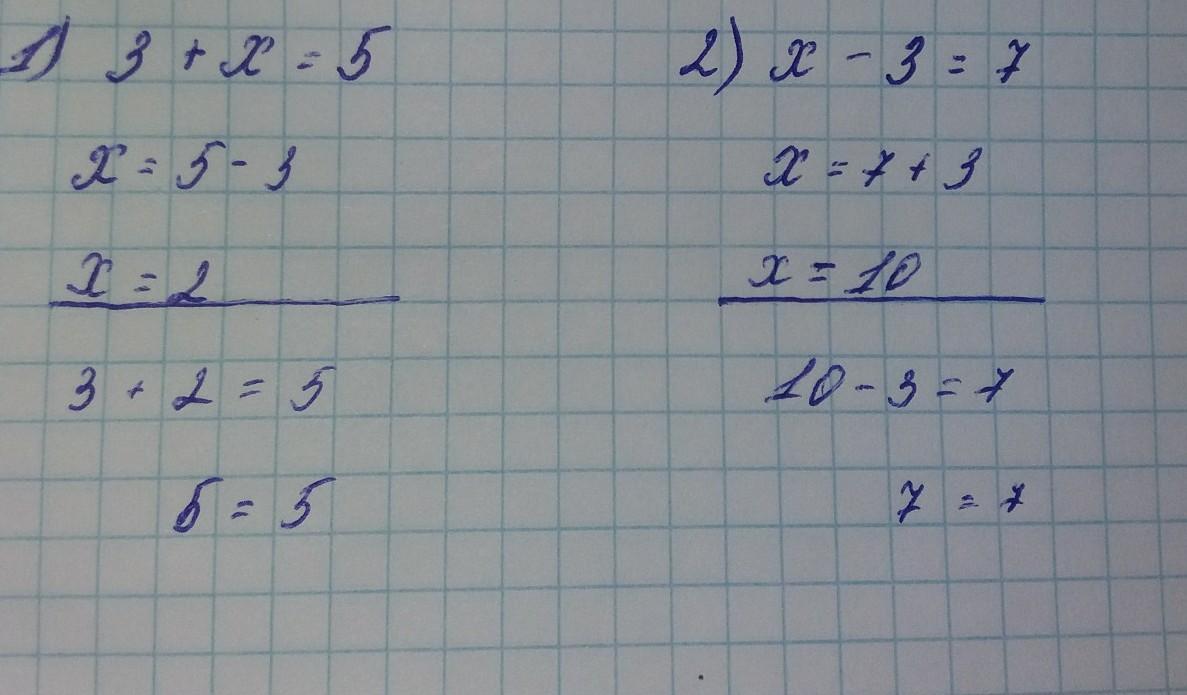 1) 3 + x = 5
x = 5 - 3
x = 2
3 + 2 = 5
5 = 5
2) x - 3 = 7
x = 7 + 3
x = 10
10 - 3 = 7
7 = 7